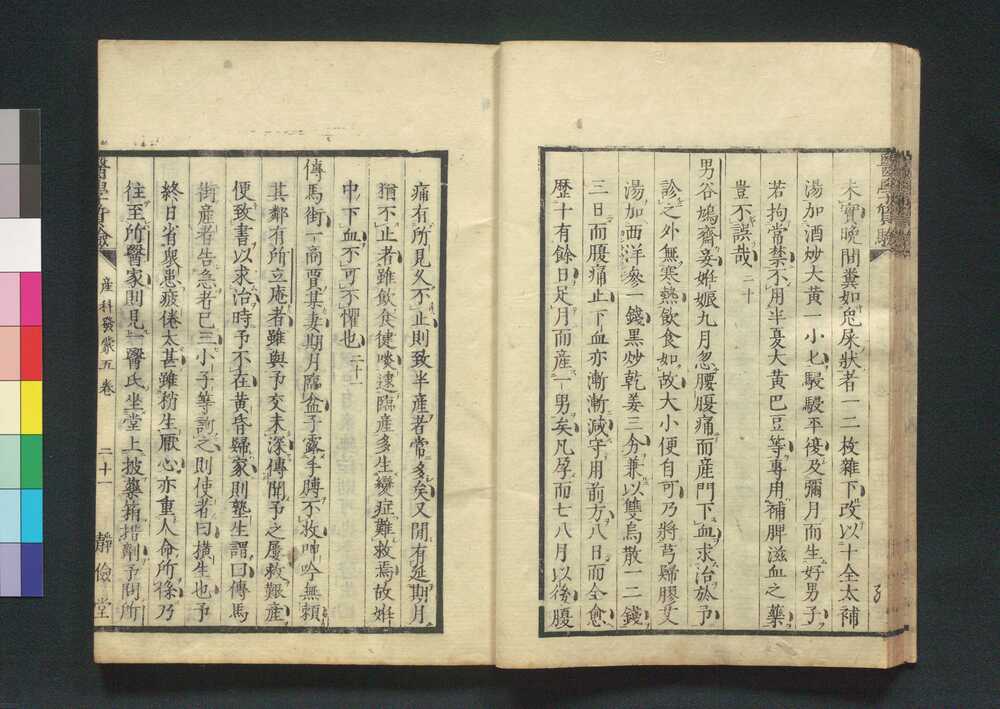 未實晩間糞如兎屎狀者一二枚雜下改以十全太補
湯加酒炒大黄一小匕駸駸平復及彌月而生好男子
若拘常禁不用半夏大黄巴豆等專用補脾滋血之藥
豈不誤哉 二十
男谷鳩齋妾姙娠九月忽腰腹痛而産門下血求治於予
診之外無寒熱飲食如故大小便自可乃將芎歸膠艾
湯加西洋參一錢黒炒乾姜三分兼以雙烏散一二錢
三日而腹痛止下血亦漸漸減守用前方八日而全愈
歴十有餘日足月而産一男矣凡孕而七八月以後腹
痛有所見久不止則致半産者常多矣又間有延期月
猶不止者雖飲食健啖逮臨産多生變症難救焉故姙
中下血不可不懼也 二十一
傳馬街一商賈其妻期月臨盆子露手膊不救呻吟無頼
其鄰有所立庵者雖與予交未深傳聞予之屢救艱産
便致書以求治時予不在黄昏歸家則塾生謂曰傳馬
街産者告急者已三小子等訶之則使者曰横生也予
終日省衆患疲倦太甚雖稍生厭心亦重人命所係乃
往至所醫家則見一醫氏坐堂上披藥箱措劑予問所
醫學質驗
産科發蒙五卷
二十一
靜儉堂